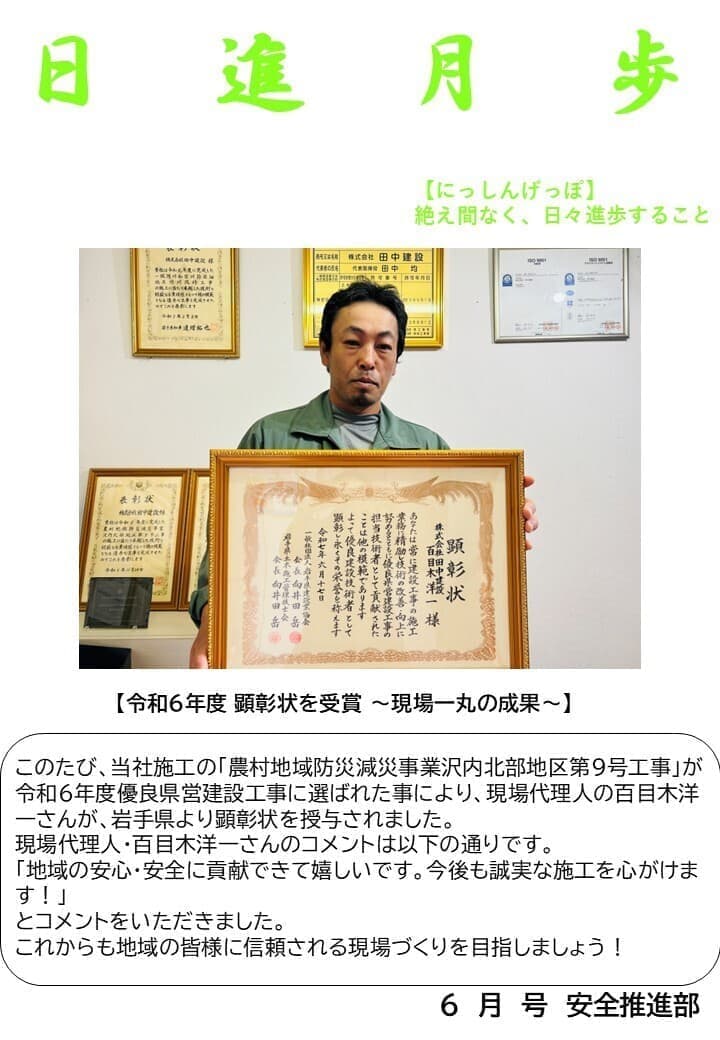 日進月歩
【にっしんげっぽ】
絶え間なく、日々進歩すること
表彰状
株式会社田中建設 様
株式会社 田中建設
代表取締役 田中 均
ISO 9001
ISO 9001
表彰状
株式会社田中建設 様
顕彰状
株式会社田中建設
百目木 洋一 様
あなたは常に建設工事の施工
業務に精励し技術の改善・向上に
努めるとともに優良県営建設工事の
担当技術者として貢献された
ことは他の模範であります
よって優良建設技術者として
顕彰し永くその栄誉を称えます
令和七年六月十七日
一般社団法人 岩手県建設業協会
会長 向井田 岳
岩手県土木施工管理技士会
会長 向井田 岳
【令和6年度 顕彰状を受賞 ～現場一丸の成果～】
このたび、当社施工の｢農村地域防災減災事業沢内北部地区第9号工事｣が
令和6年度優良県営建設工事に選ばれた事により、現場代理人の百目木洋
一さんが、岩手県より顕彰状を授与されました。
現場代理人・百目木洋一さんのコメントは以下の通りです。
｢地域の安心・安全に貢献できて嬉しいです。今後も誠実な施工を心がけま
す！｣
とコメントをいただきました。
これからも地域の皆様に信頼される現場づくりを目指しましょう！
6 月 号 安全推進部